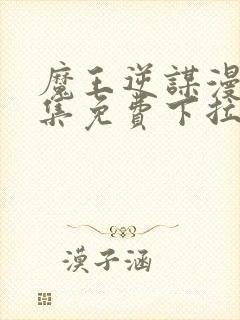 魔王逆謀漫
集免費下拉
漠子涵